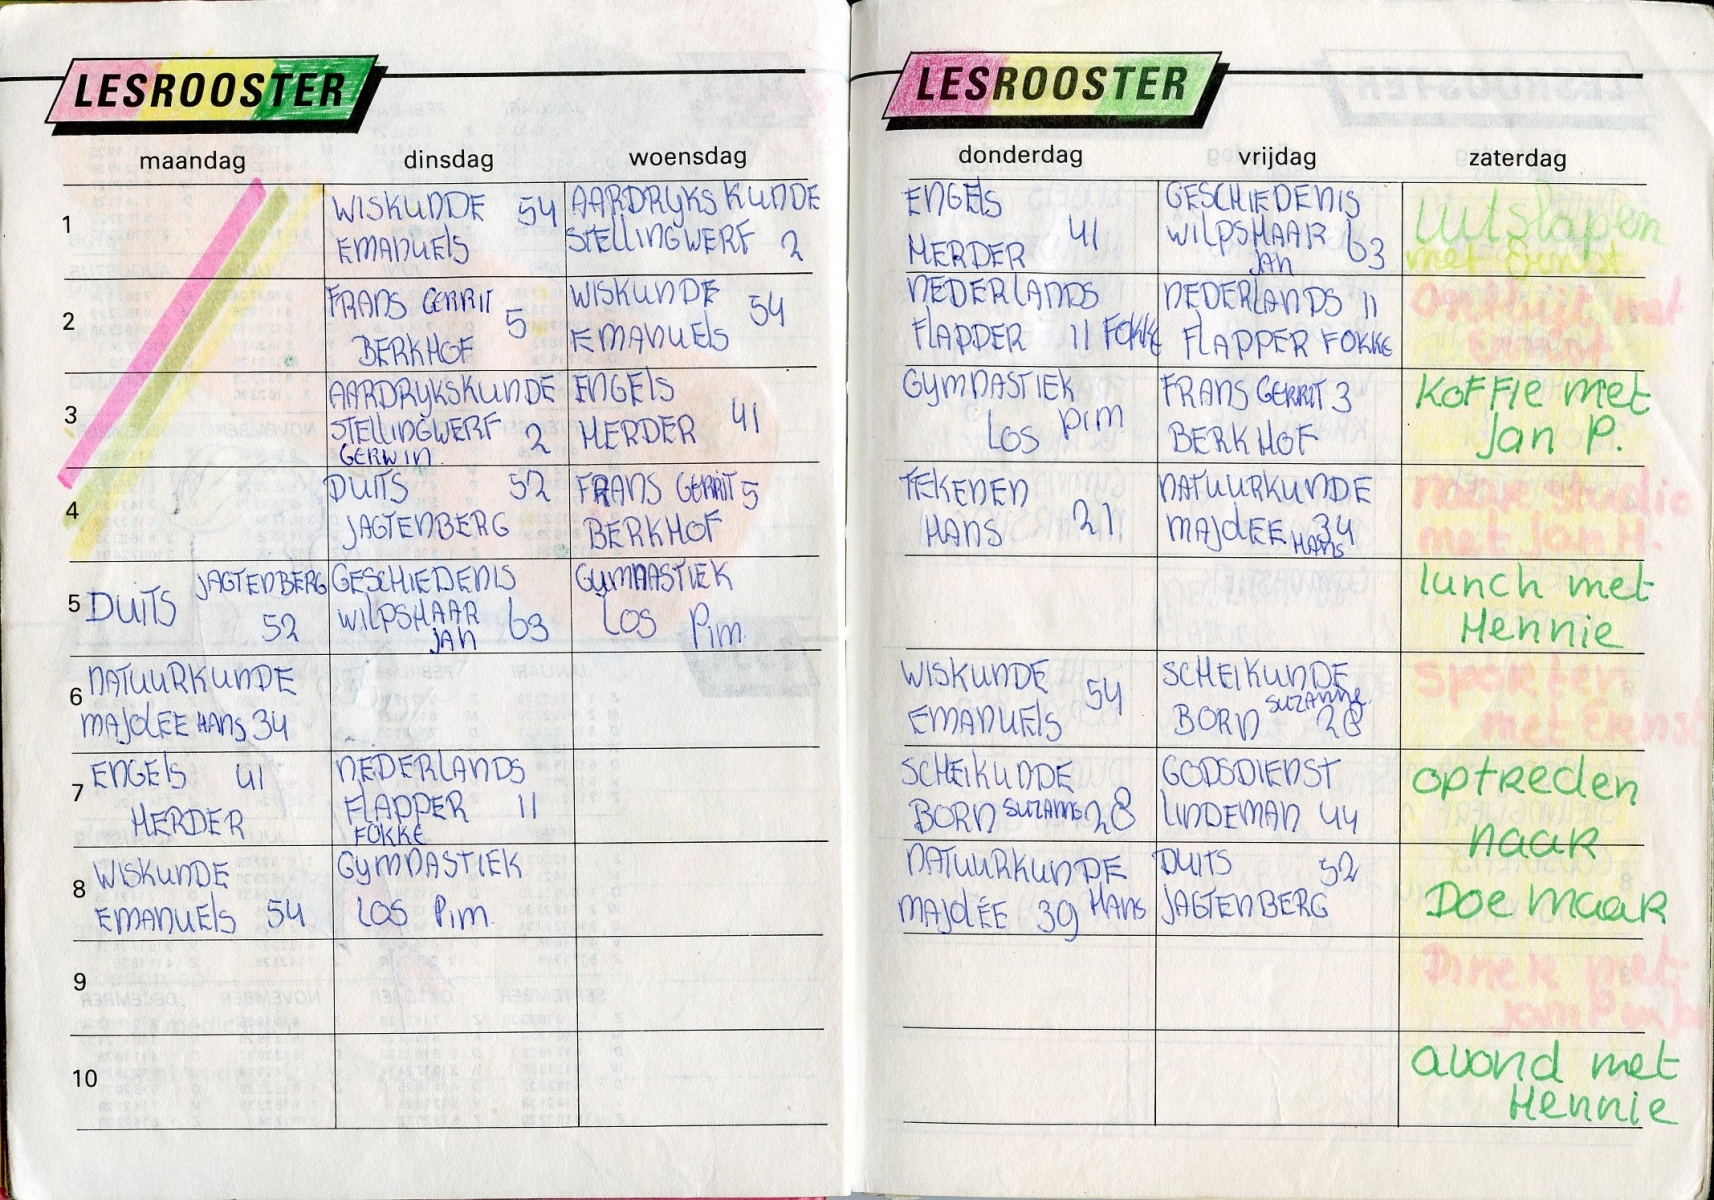 LESROOSTER
maandag dinsdag woensdag
1
WISKUNDE 54
EMANUELS
AARDRIJKSKUNDE
STELLINGWERF 2
2
FRANS GERRIT 5
BERKHOF
WISKUNDE 54
EMANUELS
3
AARDRIJKSKUNDE
STELLINGWERF 2
GERWIN
ENGELS
HERDER 41
4
DUITS 52
JAGTENBERG
FRANS GERRIT 5
BERKHOF
5
JAGTENBERG
DUITS
52
GESCHIEDENIS
WILPSHAAR 63
JAN
GYMNASTIEK
LOS Pim
6
NATUURKUNDE
MAJOLEE HANS 34
7
ENGELS 41
HERDER
NEDERLANDS
FLAPPER 11
FOKKE
8
WISKUNDE
EMANUELS 54
GYMNASTIEK
LOS Pim.
9
10
LESROOSTER
donderdag vrijdag zaterdag
ENGELS
HERDER 41
GESCHIEDENIS
WILPSHAAR 63
JAN
uitslapen
met Ernst
NEDERLANDS
FLAPPER 11 FOKKE
NEDERLANDS 11
FLAPPER FOKKE
ontbijt met
Ernst
GYMNASTIEK
LOS Pim
FRANS GERRIT 3
BERKHOF
KOFFIE met
Jan P.
TEKENEN
HANS 21
NATUURKUNDE
MAJOLEE 34
HANS
naar studio
met Jan H.
lunch met
Hennie
WISKUNDE 54
EMANUELS
SCHEIKUNDE
SUZANNE
BORN 28
sporten
met Ernst
SCHEIKUNDE
BORN SUZANNE 28
GODSDIENST
LINDEMAN 44
optreden
naar
NATUURKUNDE
MAJOLÉE 39 HANS
DUITS 52
JAGTENBERG
DOE MAAR
Diner met
Jan
avond met
Hennie